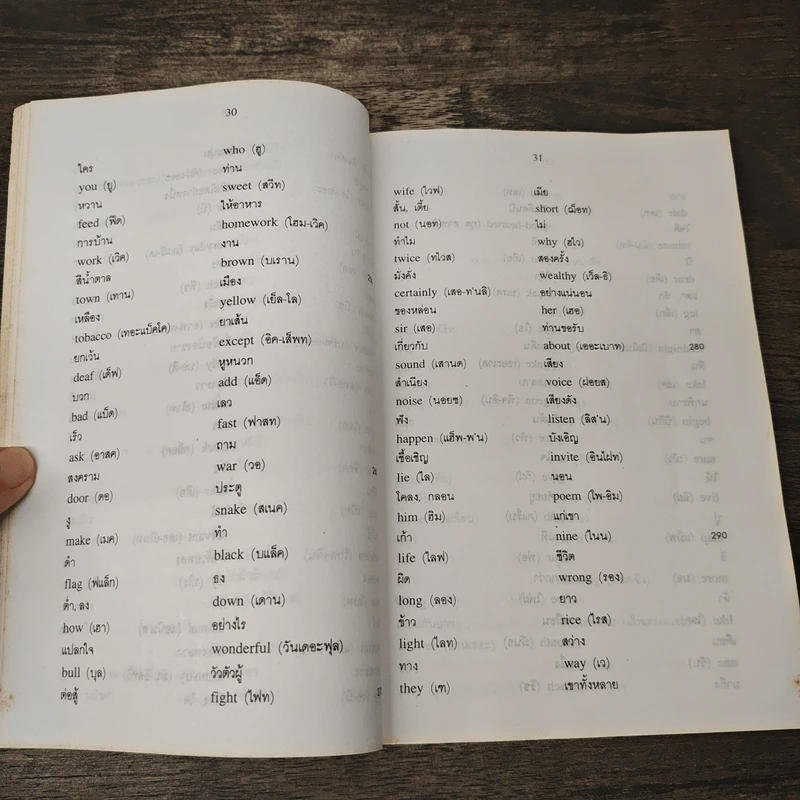 30
ใคร who (ฮู)
you (ยู) ท่าน
หวาน sweet (สวีท)
feed (ฟีด) ให้อาหาร
การบ้าน homework (โฮม-เวิค)
work (เวิค) งาน
สีน้ำตาล brown (บเราน)
town (ทาน) เมือง
เหลือง yellow (เย็ล-โล)
tobacco (เทอะแบ็คโค) ยาเส้น
ยกเว้น except (อิค-เส็พท)
deaf (เด็ฟ) หูหนวก
บวก add (แอ็ด)
bad (แบ็ด) เลว
เร็ว fast (ฟาสท)
ask (อาสค) ถาม
สงคราม war (วอ)
door (ดอ) ประตู
งู snake (สเนค)
make (เมค) ทำ
ดำ black (บแล็ค)
flag (ฟแล็ก) ธง
ต่ำ, ลง down (เดาน)
how (เฮา) อย่างไร
แปลกใจ wonderful (วันเดอะฟุล)
bull (บุล) วัวตัวผู้
ต่อสู้ fight (ไฟท)
31
wife (ไวฟ) เมีย
สั้น, เตี้ย short (ฌ็อท)
not (นอท) ไม่
ทำไม why (ฮไว)
twice (ทไวส) สองครั้ง
มั่งคั่ง wealthy (เว็ล-ธิ)
certainly (เสอ-ท'นลิ) อย่างแน่นอน
ของหล่อน her (เฮอ)
sir (เสอ) ท่านขอรับ
เกี่ยวกับ about (เออะเบาท) 280
sound (เสานด) เสียง
สำเนียง voice (ฝอยส)
noise (นอยซ) เสียงดัง
ฟัง listen (ลิส'น)
happen (แฮ็พ-พ'น) บังเอิญ
เชื้อเชิญ invite (อินไฝท)
lie (ไล) นอน
โคลง, กลอน poem (โพ-อิม)
him (ฮิม) แก่เขา
เก้า nine (ไนน) 290
life (ไลฟ) ชีวิต
ผิด wrong (รอง)
long (ลอง) ยาว
ข้าว rice (ไรส)
light (ไลท) สว่าง
ทาง way (เว)
they (เฑ) เขาทั้งหลาย